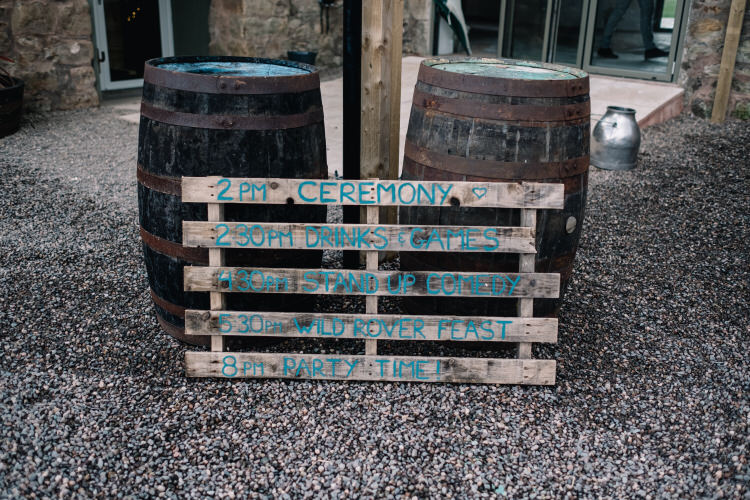 2PM CEREMONY ♡
2.30PM DRINKS & GAMES
4.30PM STAND UP COMEDY
5.30PM WILD ROVER FEAST
8PM PARTY TIME!